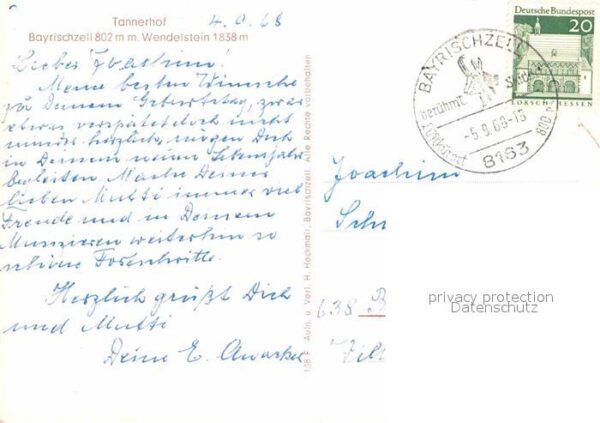 Tannerhof
Bayrischzell 802 m m. Wendelstein 1838 m
4. 9. 68
Lieber Joachim!
Meine besten Wünsche
zu Deinem Geburtstag, zwar
etwas verspätet doch nicht
minder herzlich, mögen Dich
in Deinem neuen Lebensjahr
begleiten. Mache Deiner
lieben Mutti immer viel
Freude und in Deinem
Musizieren weiterhin so
schöne Fortschritte.
Herzlich grüßt Dich
und Mutti
Deine E.
138 F Aufn. u. Verl. H. Hackmair, Bayrischzell. Alle Rechte vorbehalten
Deutsche Bundespost
20
LORSCH/HESSEN
BAYRISCHZELL
berühmt
-5.9.68-15
800 m
8163
Joachim
Sch
638 B
privacy protection
Datenschutz